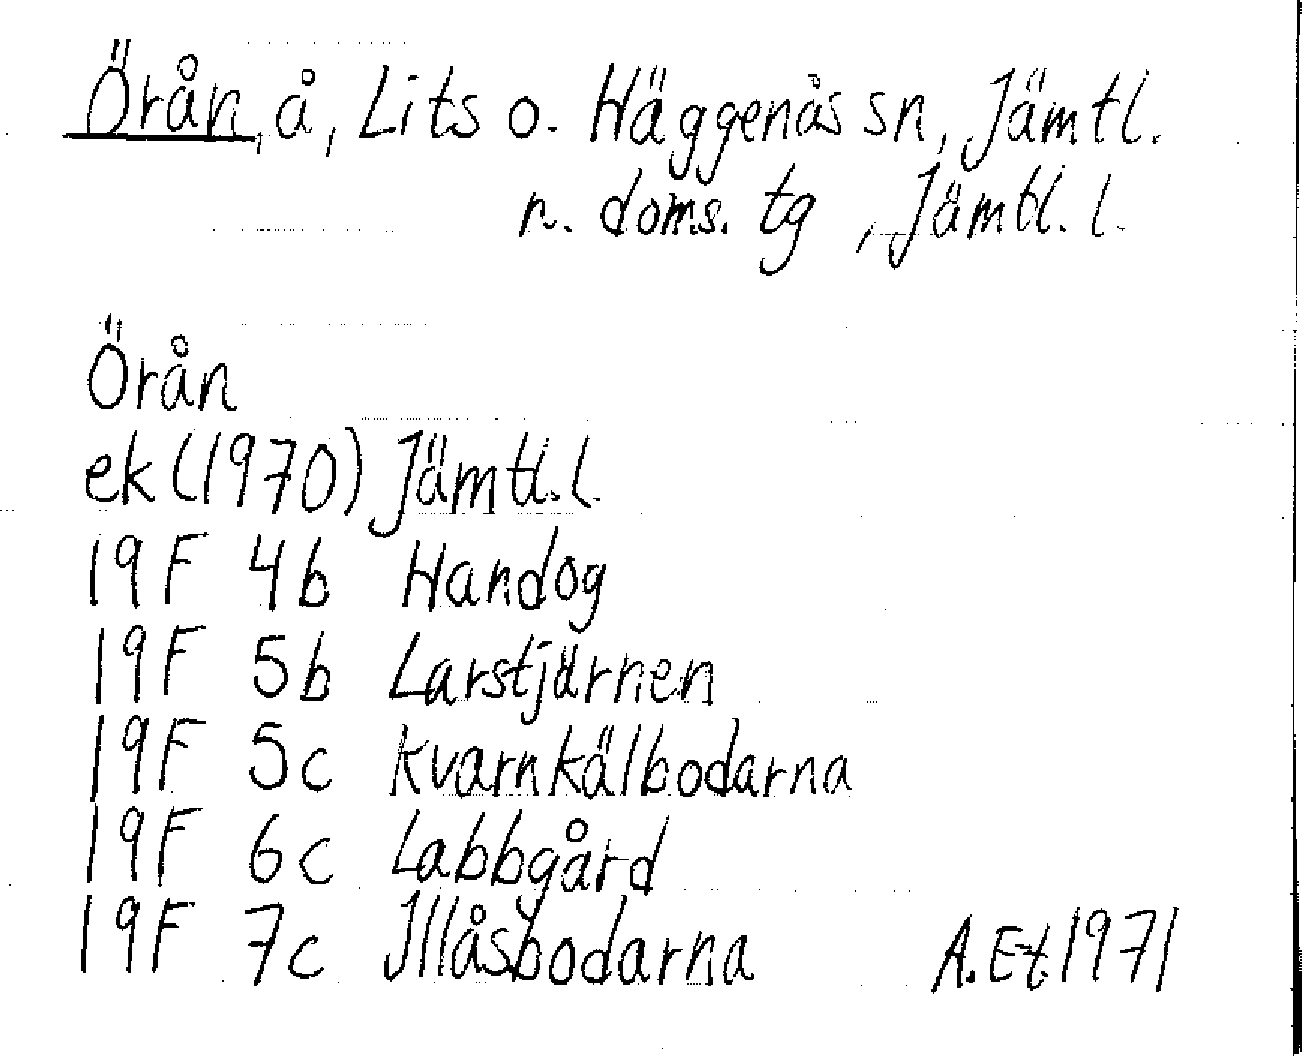 Örån, å, Lits o. Häggenås sn, Jämtl.
n. doms. tg, Jämtl. l.
Örån
ek (1970) Jämtl. l.
19F 4b Handog
19F 5b Larstjärnen
19F 5c Kvarnkälbodarna
19F 6c Labbgård
19F 7c Illåsbodarna A. Et. 1971